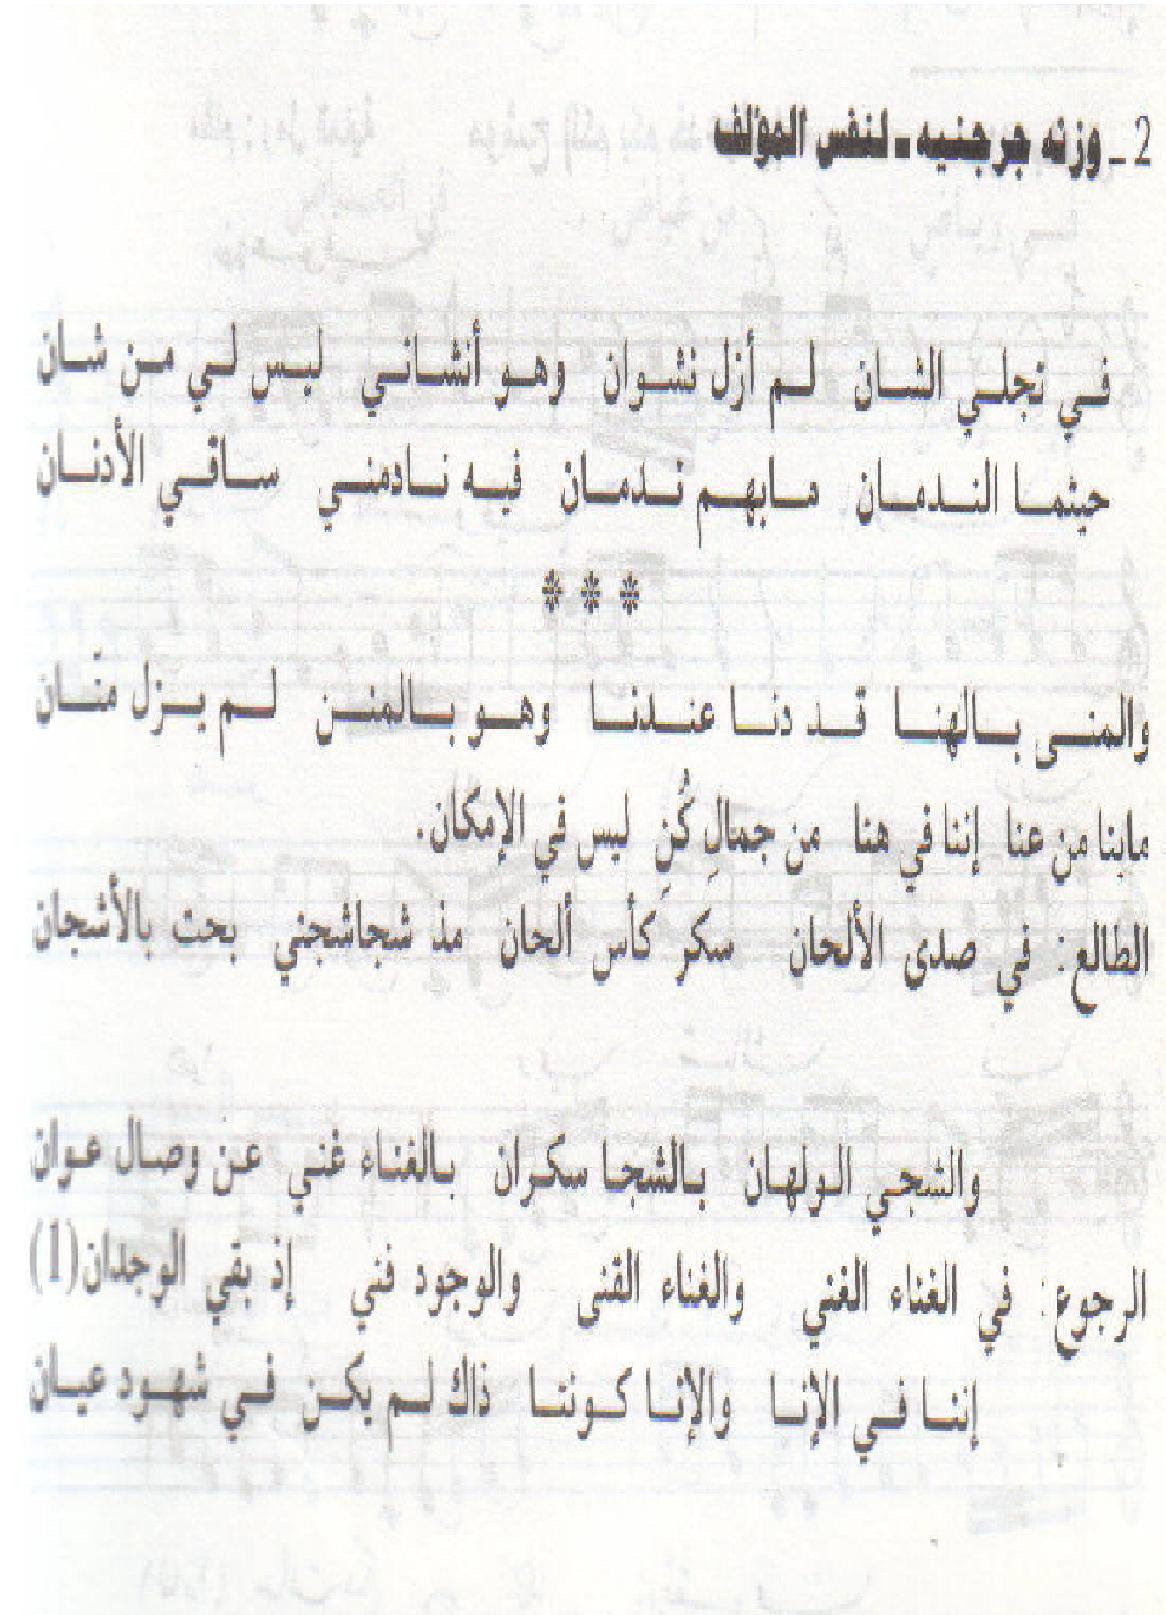 2 ـ وزنه جرجنيه ـ لنفس المؤلف
في تجلي الشان لم أزل نشوان وهو أنشاني ليس لي من شان
حيثما الندمان مابهم ندمان فيه نادمني ساقي الأدنان
* * *
والمنى بالهنا قد دنا عندنا وهو بالمنن لم يزل منّان
مابنا من عنا إننا في هنا من جمالِ كُنِ ليس في الإمكان.
الطالع: في صدى الألحان سكر كأس ألحان مذ شجاشجني بحت بالأشجان
والشجي الولهان بالشجا سكران بالغناء غني عن وصال عوان
الرجوع: في الغناء الغني والغناء القنى والوجود فني إذ بقي الوجدان(1)
إننا في الإنا والإنا كوننا ذاك لم يكن في شهود عيان